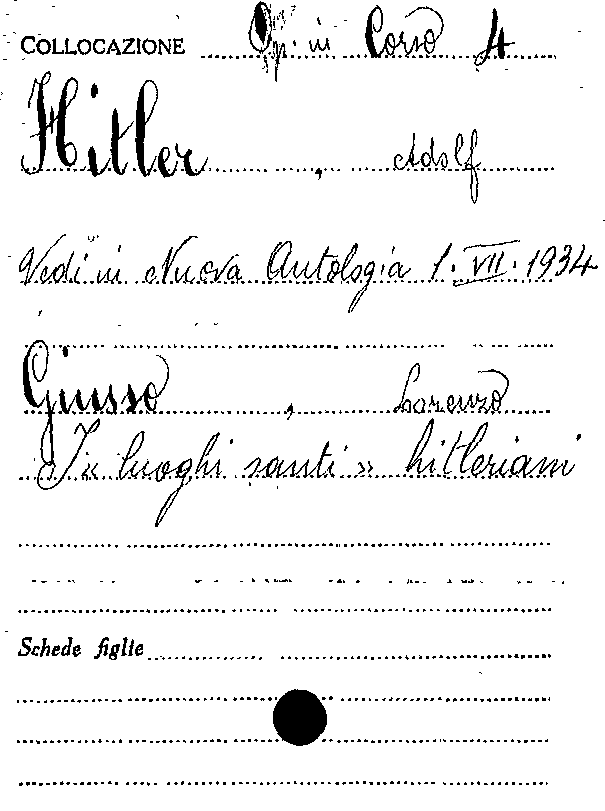 COLLOCAZIONE Op. in Corso 4
Hitler, Adolf
Vedi in Nuova Antologia 1. VII. 1934
Giusso, Lorenzo
I « luoghi santi » hitleriani
Schede figlie